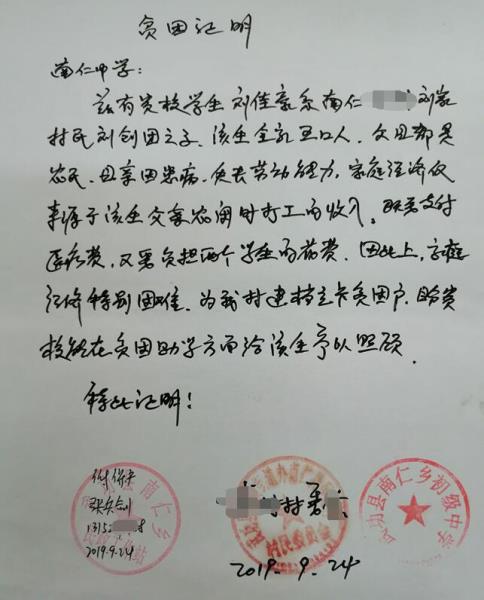 贫困证明
南仁中学：
兹有贵校学生刘佳豪系南仁 刘家
村民刘创团之子、该生全家五口人、父母都是
农民、母亲因患病、失去劳动能力，家庭经济仅
来源于该生父亲农闲时打工的收入。既要支付
医疗费，又要负担两个学生的花费。因此上，家庭
经济特别困难、为我村建档立卡贫困户、盼贵
校能在贫困助学方面给该生予以照顾．
特此证明！
南仁乡
民政工作站
2019.9.24
村委
村民委员会
2019.9.24
武功县南仁乡初级中学